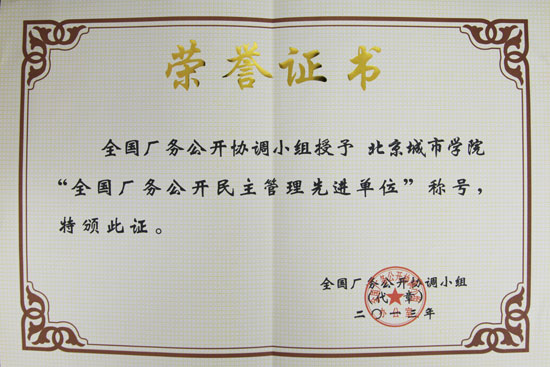 荣誉证书
全国厂务公开协调小组授予 北京城市学院
“全国厂务公开民主管理先进单位”称号，
特颁此证。
全国厂务公开协调小组
（代章）
二〇一三年